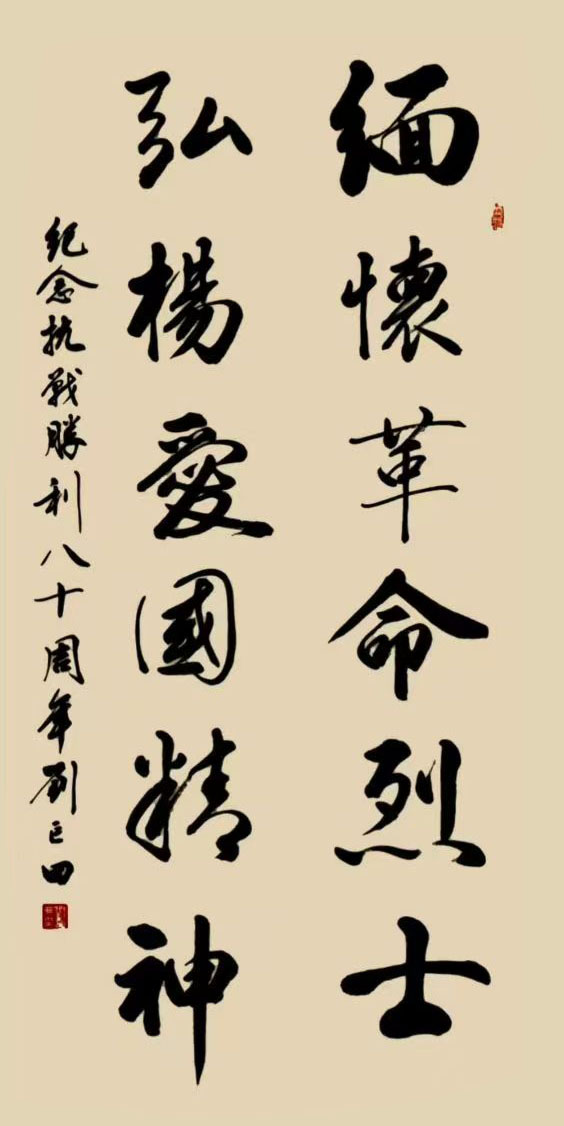 缅懷革命烈士
弘楊愛國精神
纪念抗戰勝利八十周年劉巨田